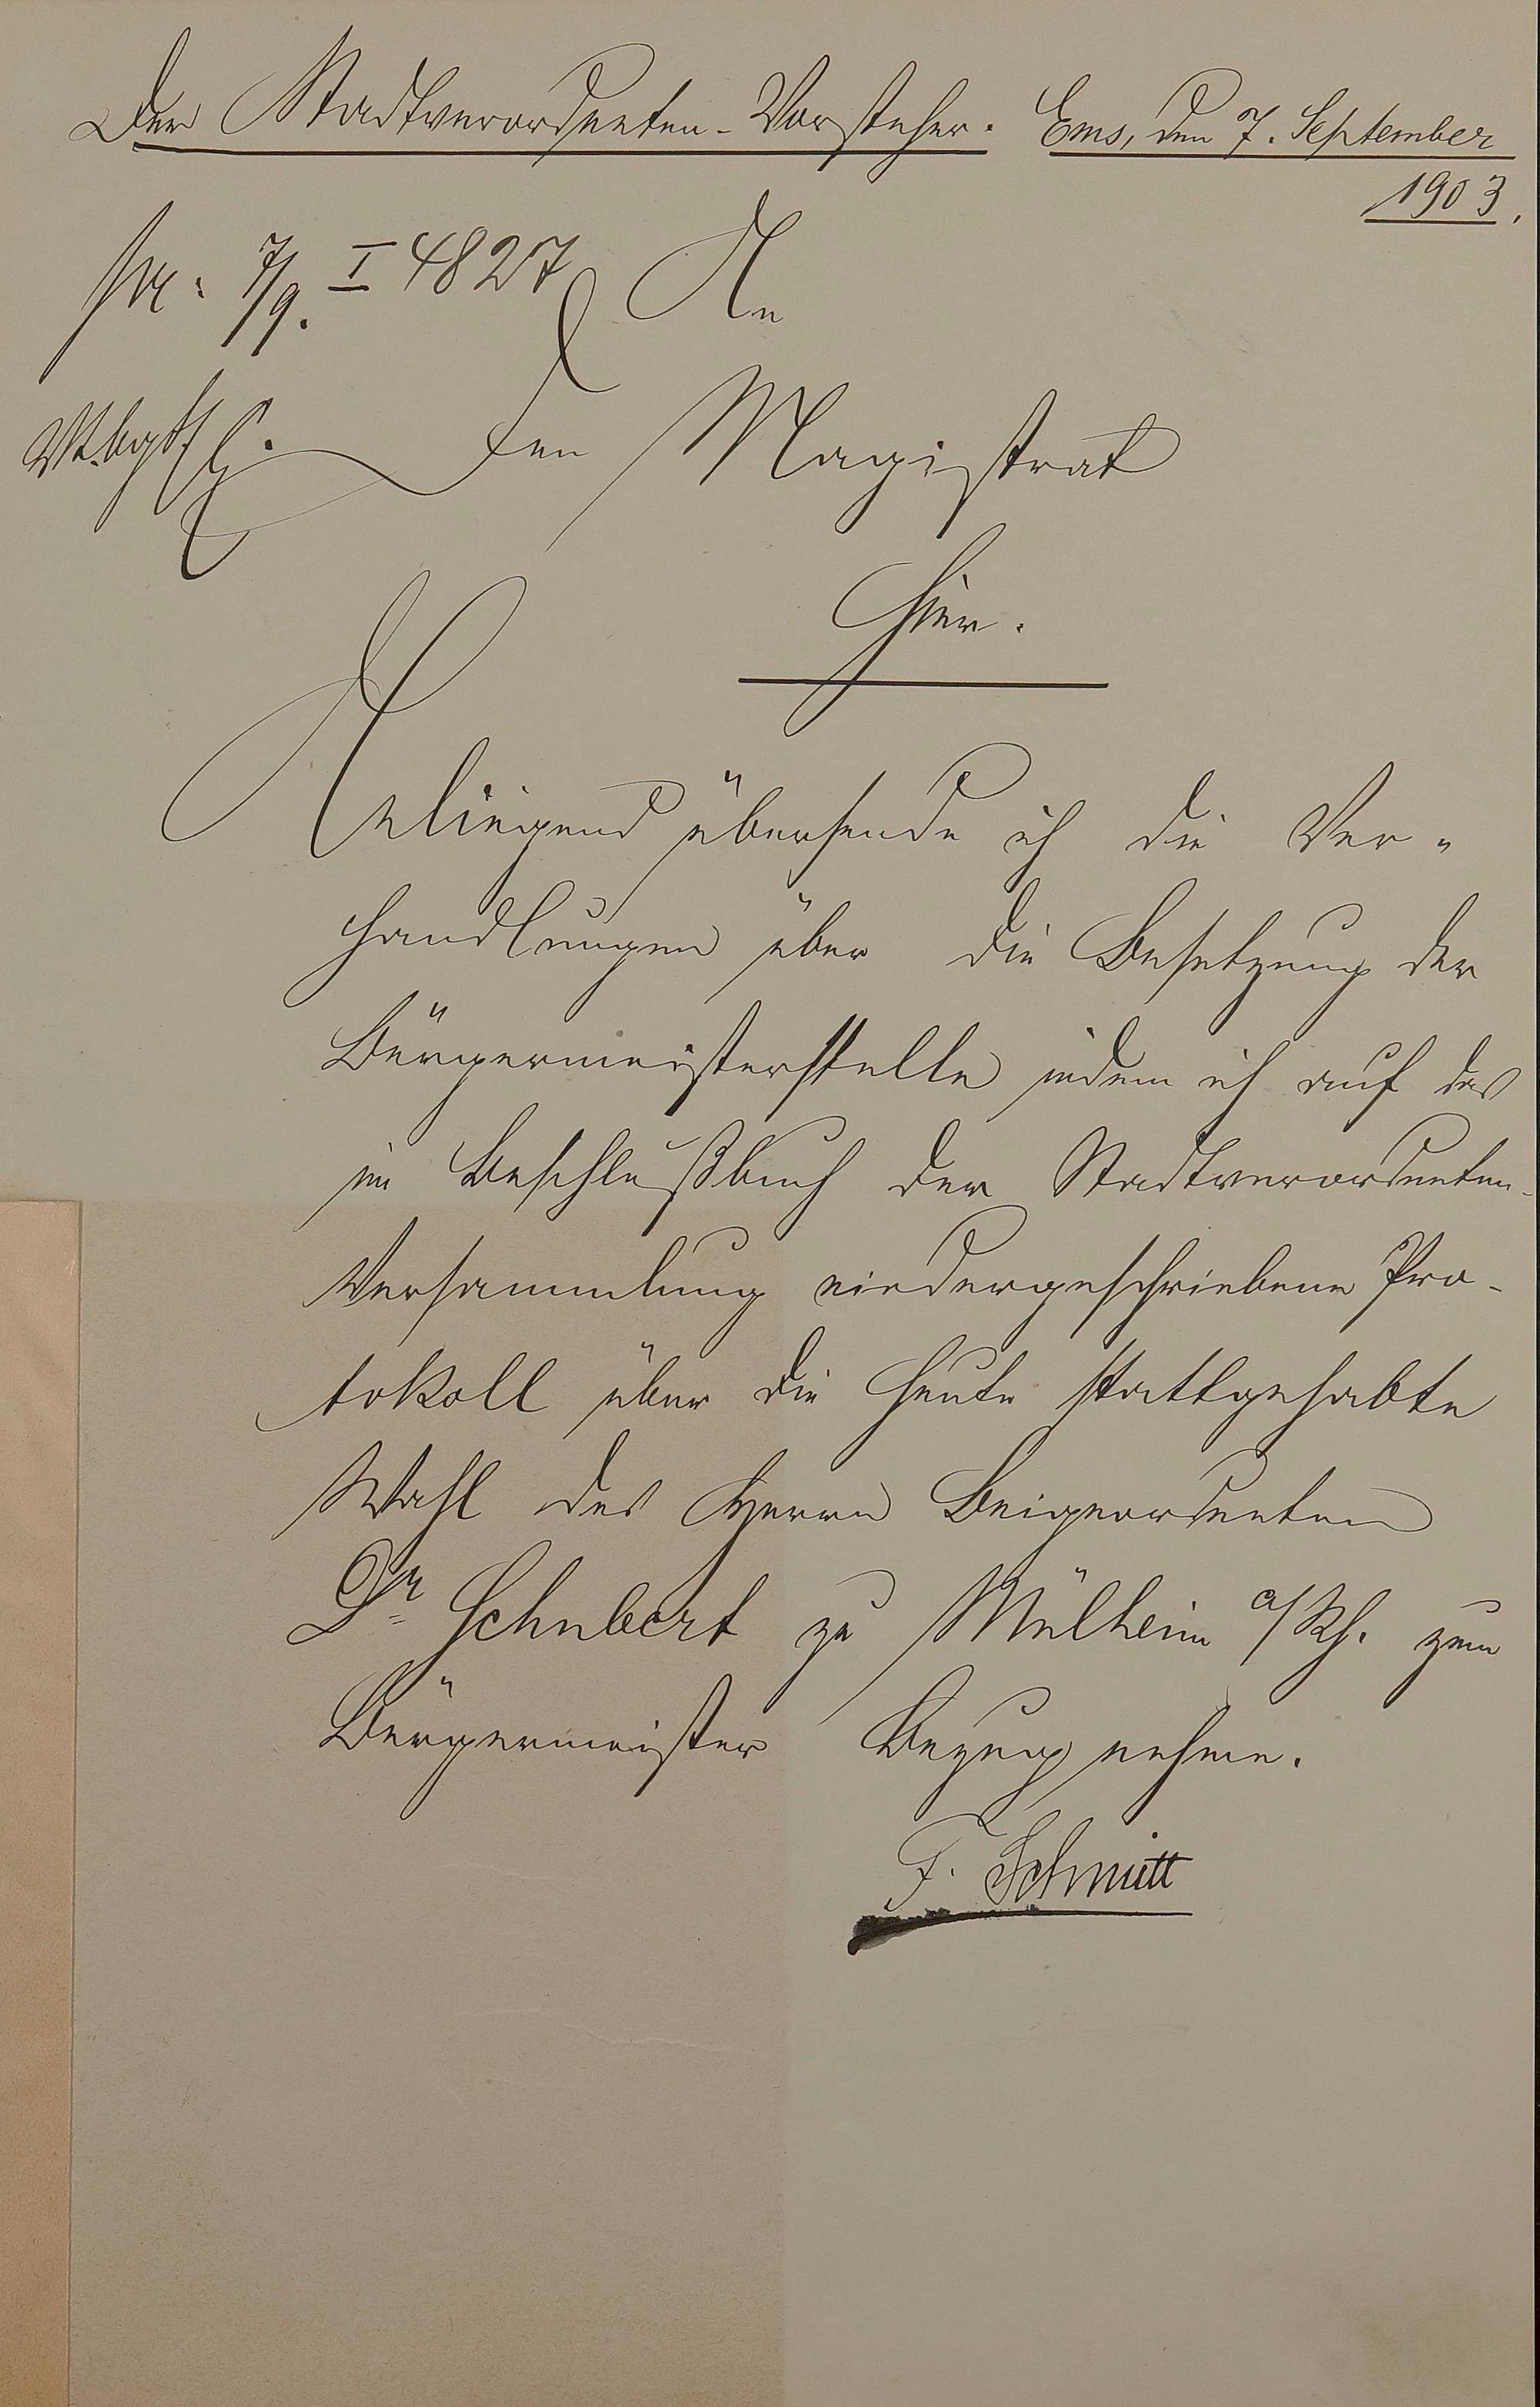 Der Stadtverordneten-Vorsteher. Ems, den 7. September
1903.
pr. 7/9. I 4827
An
den Magistrat
Hier.
Anliegend übersende ich die Ver-
handlungen über die Besetzung der
Bürgermeisterstelle indem ich auf das
im Beschlußbuch der Stadtverordneten-
Versammlung niedergeschriebene Pro-
tokoll über die heute stattgehabte
Wahl des Herrn Beigeordneten
Dr Schubert zu Mülheim a/Rh. zum
Bürgermeister Bezug nehme.
F. Schmitt